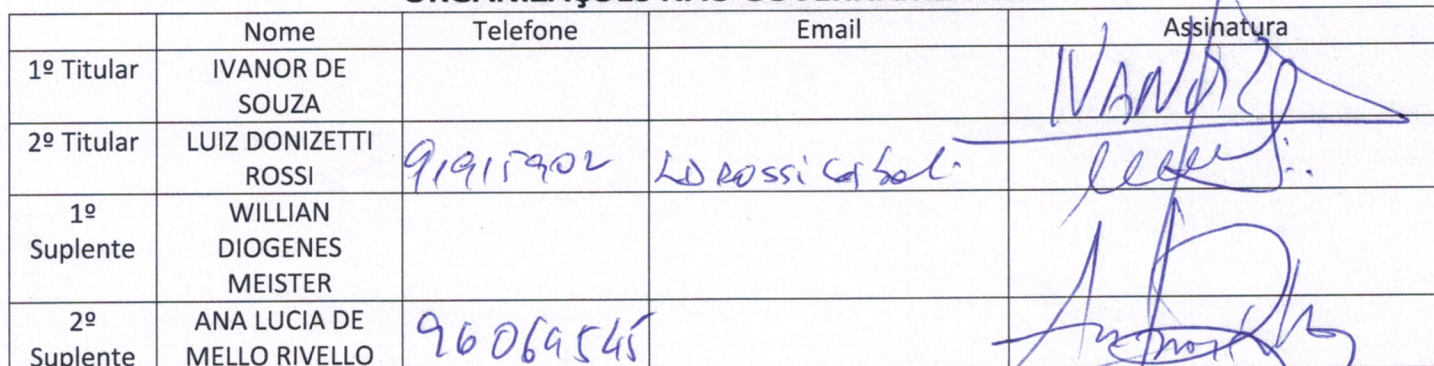 Nome Telefone Email Assinatura
1º Titular IVANOR DE SOUZA IVANOR
2º Titular LUIZ DONIZETTI ROSSI 91915902
1º Suplente WILLIAN DIOGENES MEISTER
2º Suplente ANA LUCIA DE MELLO RIVELLO 96069545